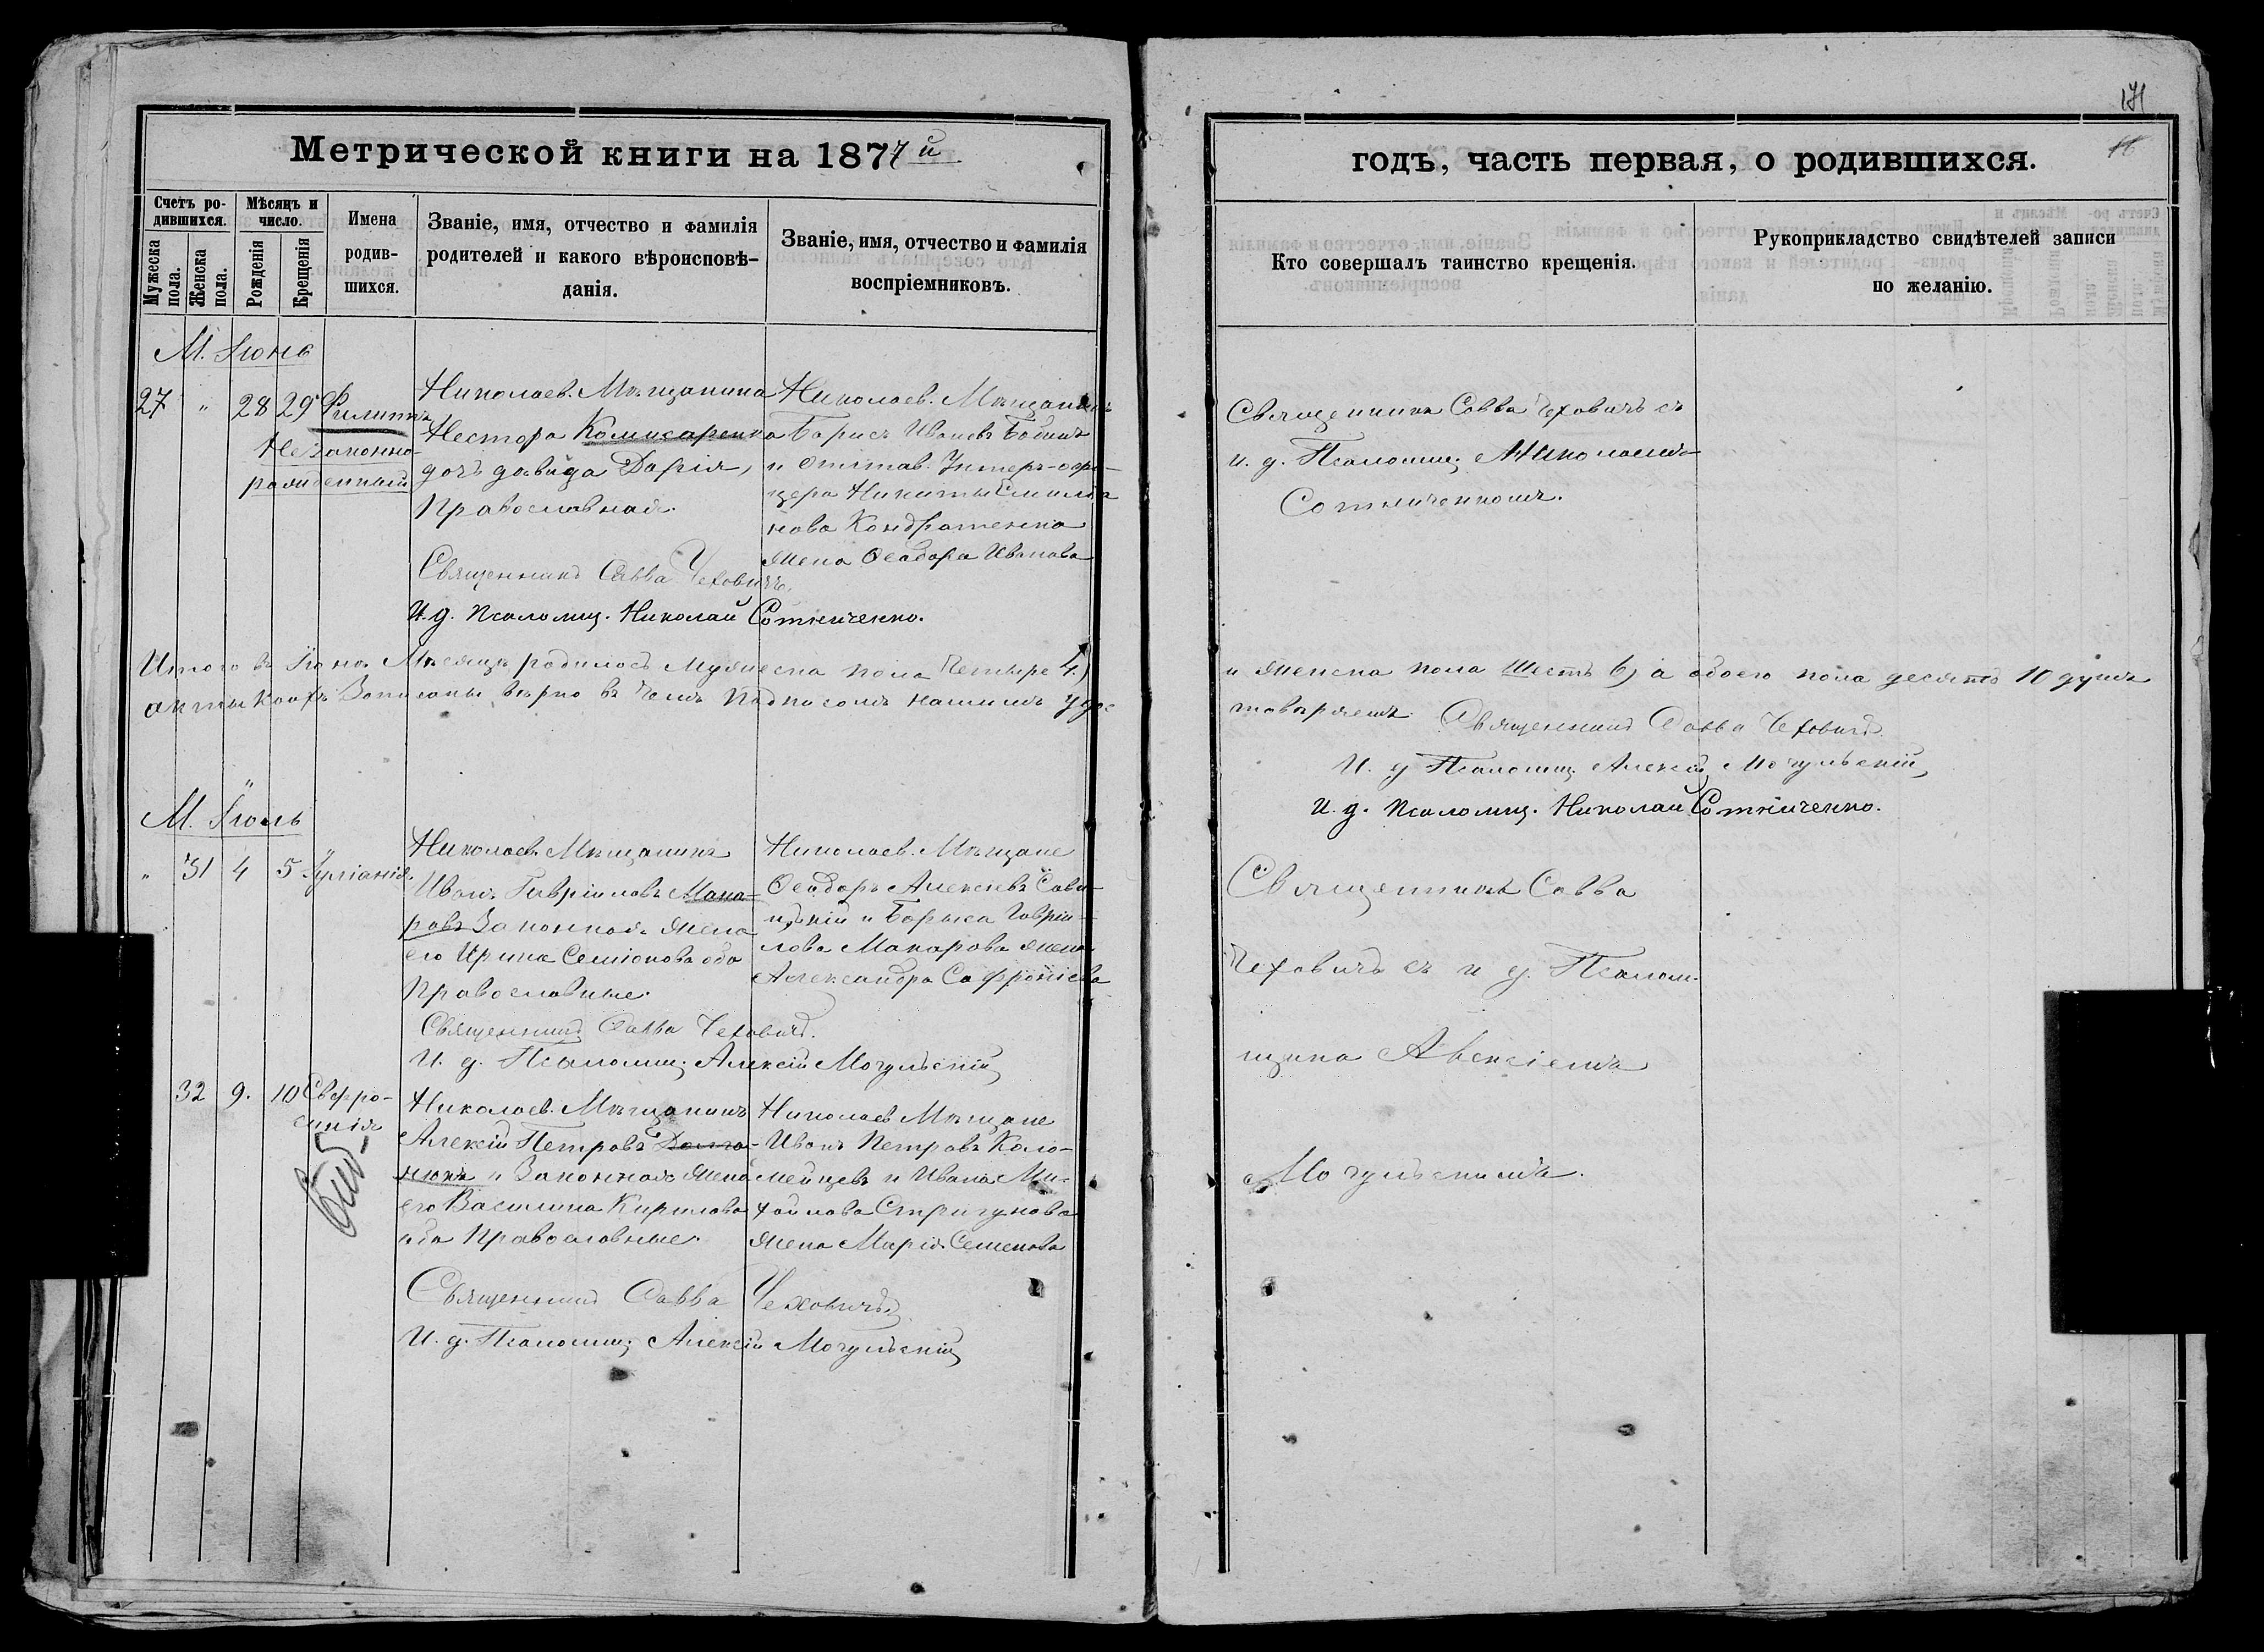 171
16
Метрической книги на 1877 й
годъ, часть первая, о родившихся.
Счетъ ро-
дившихся.
Мужеска пола.
Женска пола.
Мѣсяцъ и
число.
Рожденія
Крещенія
Имена
родив-
шихся.
Званіе, имя, отчество и фамилія
родителей и какого вѣроисповѣ-
данія.
Званіе, имя, отчество и фамилія
воспріемниковъ.
Кто совершалъ таинство крещенія.
Рукоприкладство свидѣтелей записи
по желанію.
М. Іюнь
27 " 28 29 Филиппъ
Незаконно-
рожденный
Николаев. Мѣщанина
Нестора Комисаренка
дочь давида Дарія,
Православная.
Николаев. Мѣщанинъ
Борисъ Ивановъ
и отстав. Унтеръ-офи-
цера Никиты
нова Кондратенка
жена Ѳеодора Иванова
Священникъ Савва Чеховичъ съ
и. д. Псаломщ. Николаемъ
Сотниченкомъ.
Священникъ Савва Чеховичъ.
И. д. псаломщ. Николай Сотниченко.
Итого въ Іюнѣ Мѣсяцѣ родилось Мужеска пола Четыре 4.)
и женска пола шесть 6) а обоего пола десять 10 душъ
акты коихъ Записаны вѣрно въ чемъ подписомъ нашимъ удос
товѣряемъ Священникъ Савва Чеховичъ
И. д Псаломщ. Алексій Могульскій
И. д. псаломщ. Николай Сотниченко.
М. Іюль
" 31 4 5 Іуліанія
Николаев. Мѣщанинъ
Иванъ Гавріиловъ Мака-
ровъ Законная жена
его Ирина Семіонова оба
Православные.
Николаев. Мѣщане
Ѳеодоръ Алексѣевъ Сави-
цькій и Бориса Гавріи-
лова Макарова жена
Александра Софроніева
Священникъ Савва
Чеховичъ съ и д. Псалом-
щика Алексіемъ
Могульскимъ.
Священникъ Савва Чеховичъ.
И. д. Псаломщ. Алексій Могульскій
32 9. 10 Евфро-
синія
Николаев. Мѣщанинъ
Алексій Петровъ
нюкъ и Законная жена
его Василина Кирилова
оба Православные.
Николаев Мѣщане
Иванъ Петровъ Коло-
мейцевъ и Ивана Ми-
хайлова Стригунова
жена Марія Семенова
Священникъ Савва Чеховичъ
И. д. Псаломщ. Алексій Могульскій